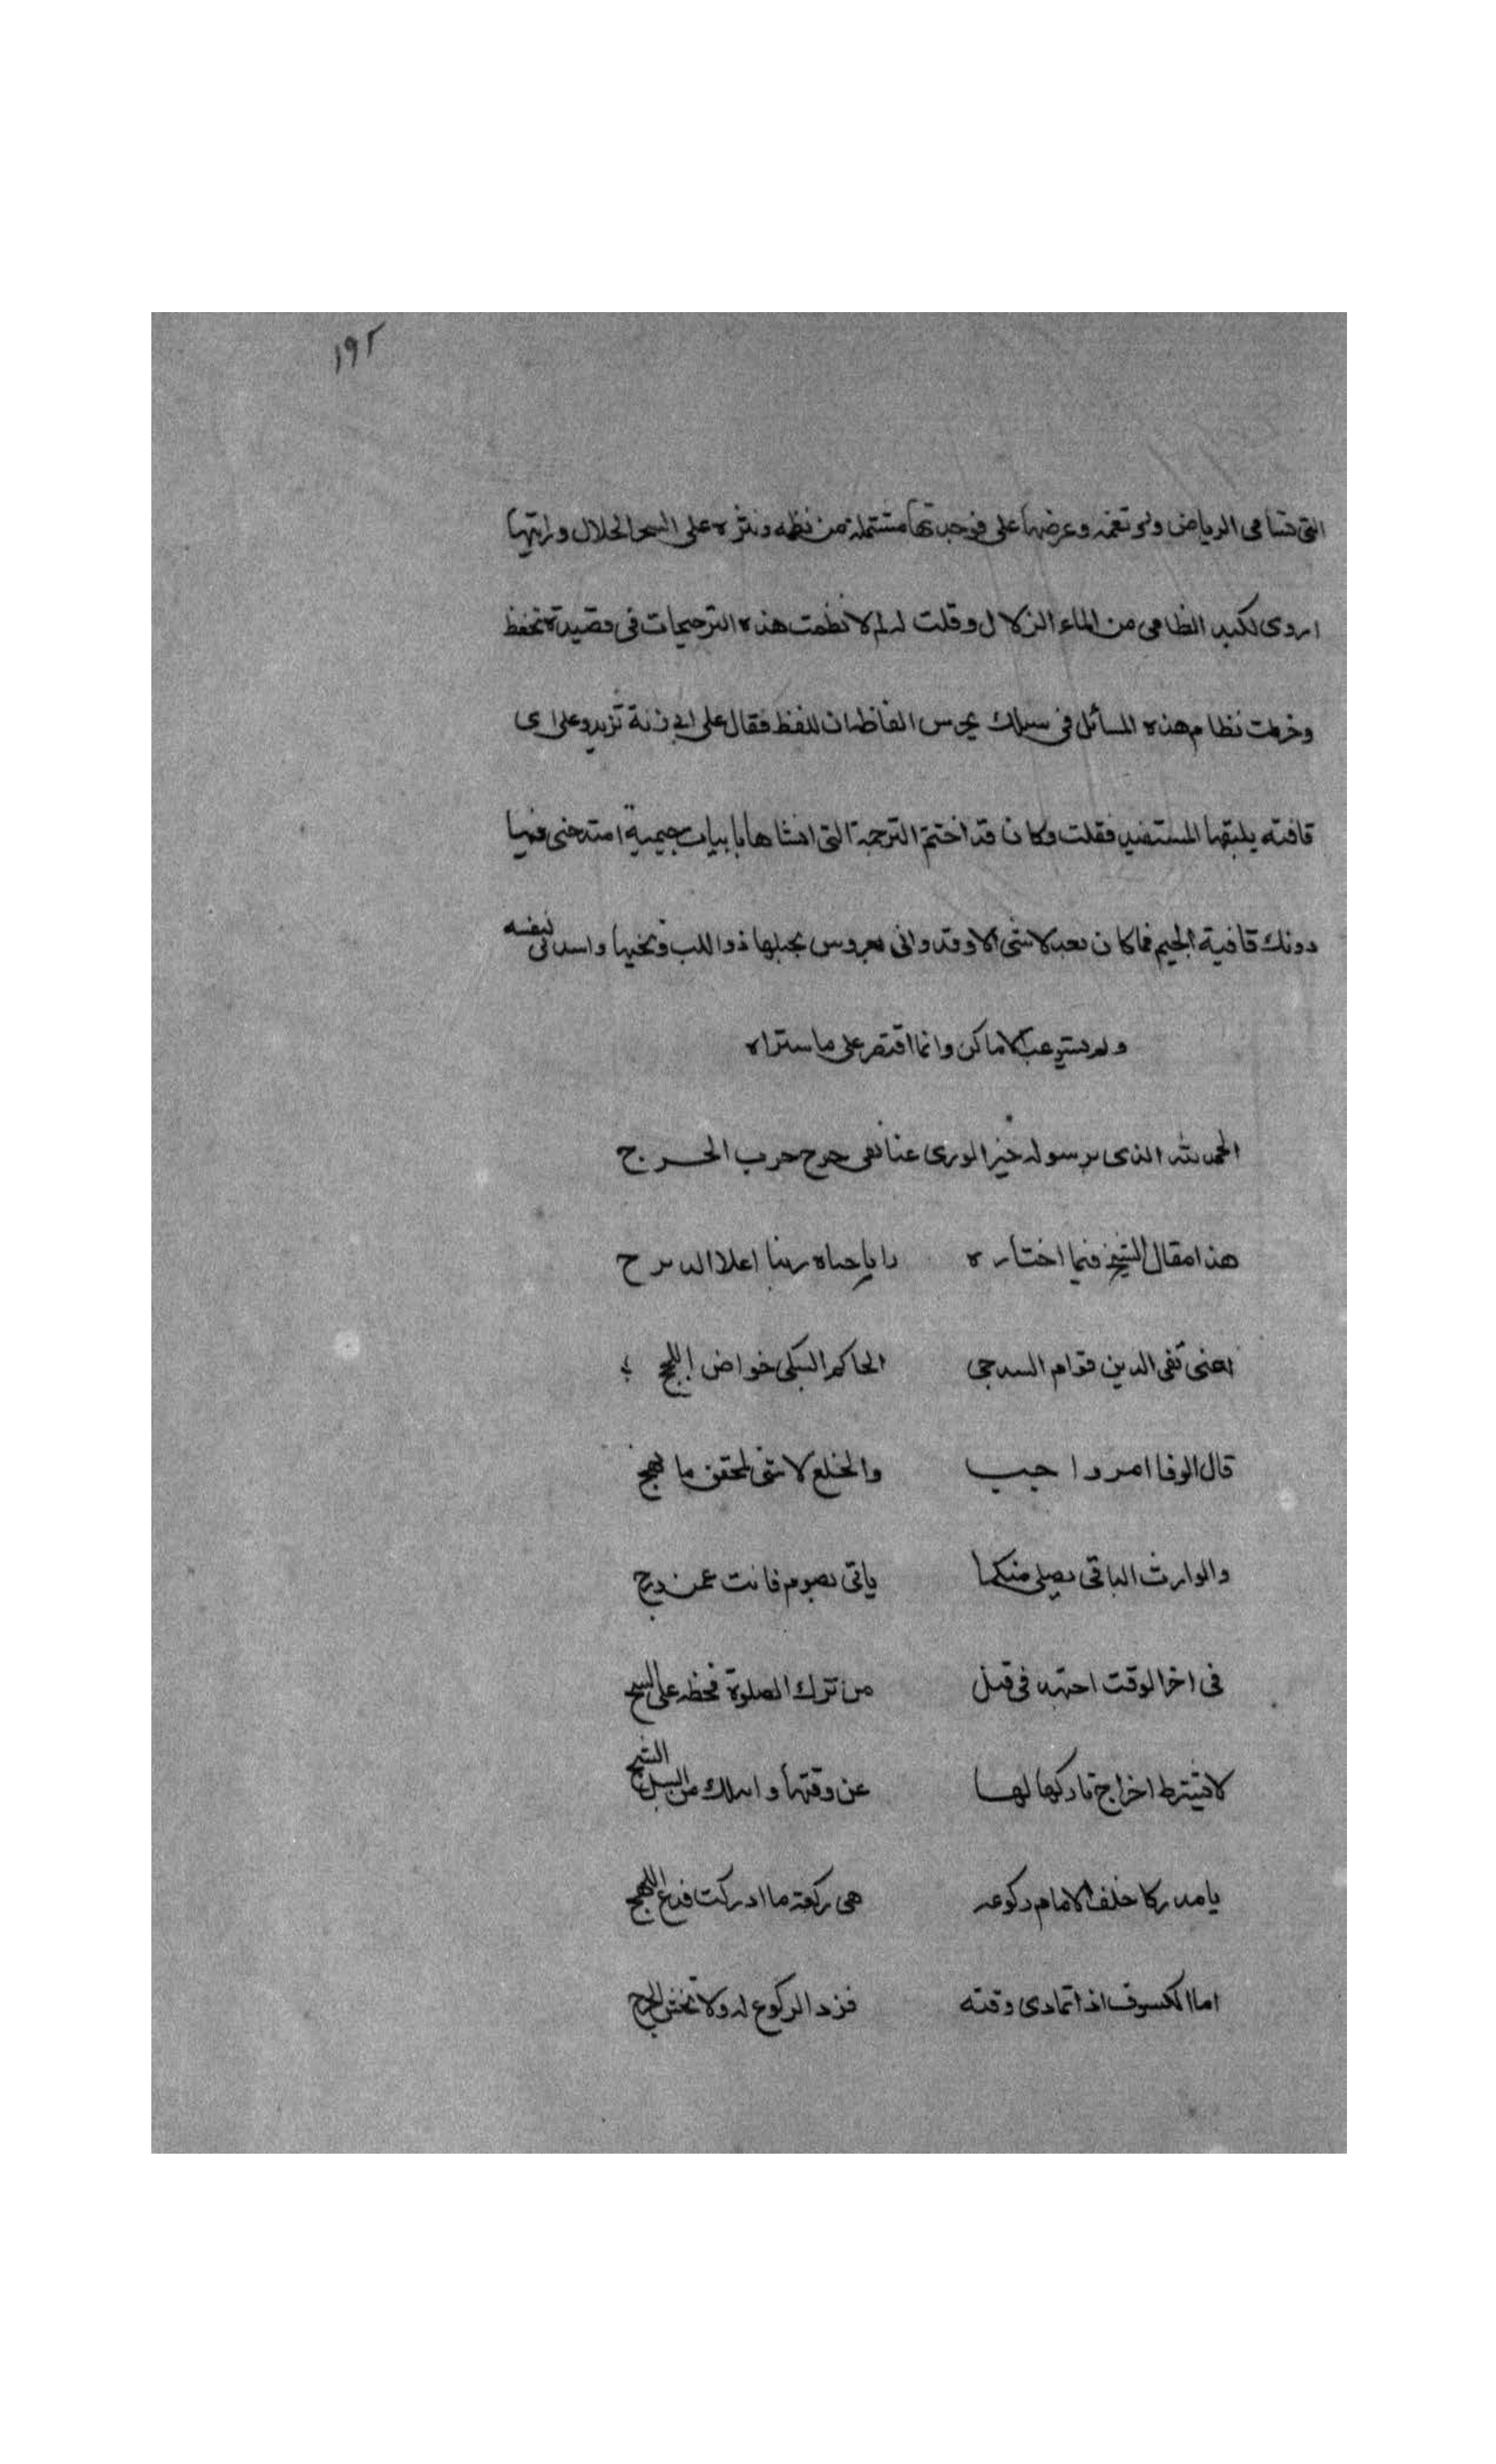 ١٩٢
التى تسامى الرياض ولو تغمه وعرضها على فوجدتها مشتملة من نظمه ونثره على السحر الحلال ورايتها
اروى لكبد الظامى من الماء الزلال وقلت له لم لا نظمت هذه الترجيحات فى قصيدة تحفظ
وخرطت نظام هذه المسائل فى سلك يحرس الفاظها ان تلفظ فقال على اى زنة تزيد وعلى اى
قافته يلبقها المستفيد فقلت وكان قد اختتم الترجمة التى انشاها بابيات جيمية امتدحنى فيها
دونك قافية الجيم فما كان بعد لاشئ الا وقد وافى بعروس ذو اللب ويخيها لنفسه
ولم يستوعب الاماكن وانما اقتصر على ما ستراه
الحمد لله الذى برسوله خير الورى عنا نفى حرج حرب الحرج
هذا مقال الشيخ فيما اختاره رايا حباه ربنا اعلا الدرج
اعنى تقى الدين قوام السدجى الحاكم السبكى خواض اللجج
قال الوفا امر واجب والخلع لا شئ لمحقق ما لهج
والوارث الباقى يصلى منكما ياتى بصوم فات عمن درج
فى اخر الوقت قتل من ترك الصلوة فحظه على السبج
لا تشترط اخراج تاركها لها عن وقتها واسلك من السبل الشبج
يا مدركا خلف الامام ركوعه هى ركعة ما ادركت فدع اللهج
اما الكسوف اذا تمادى وقته فزد الركوع له ولا تخش الحرج